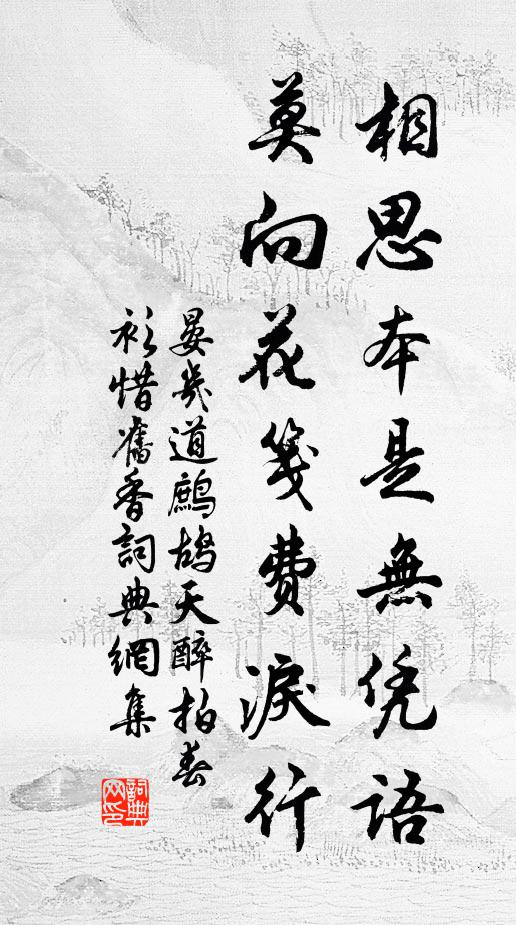 相思本是無凭語
莫向花箋費淚行
晏幾道鷓鴣天醉拍春
衫惜舊香詞典網集
詞典網印